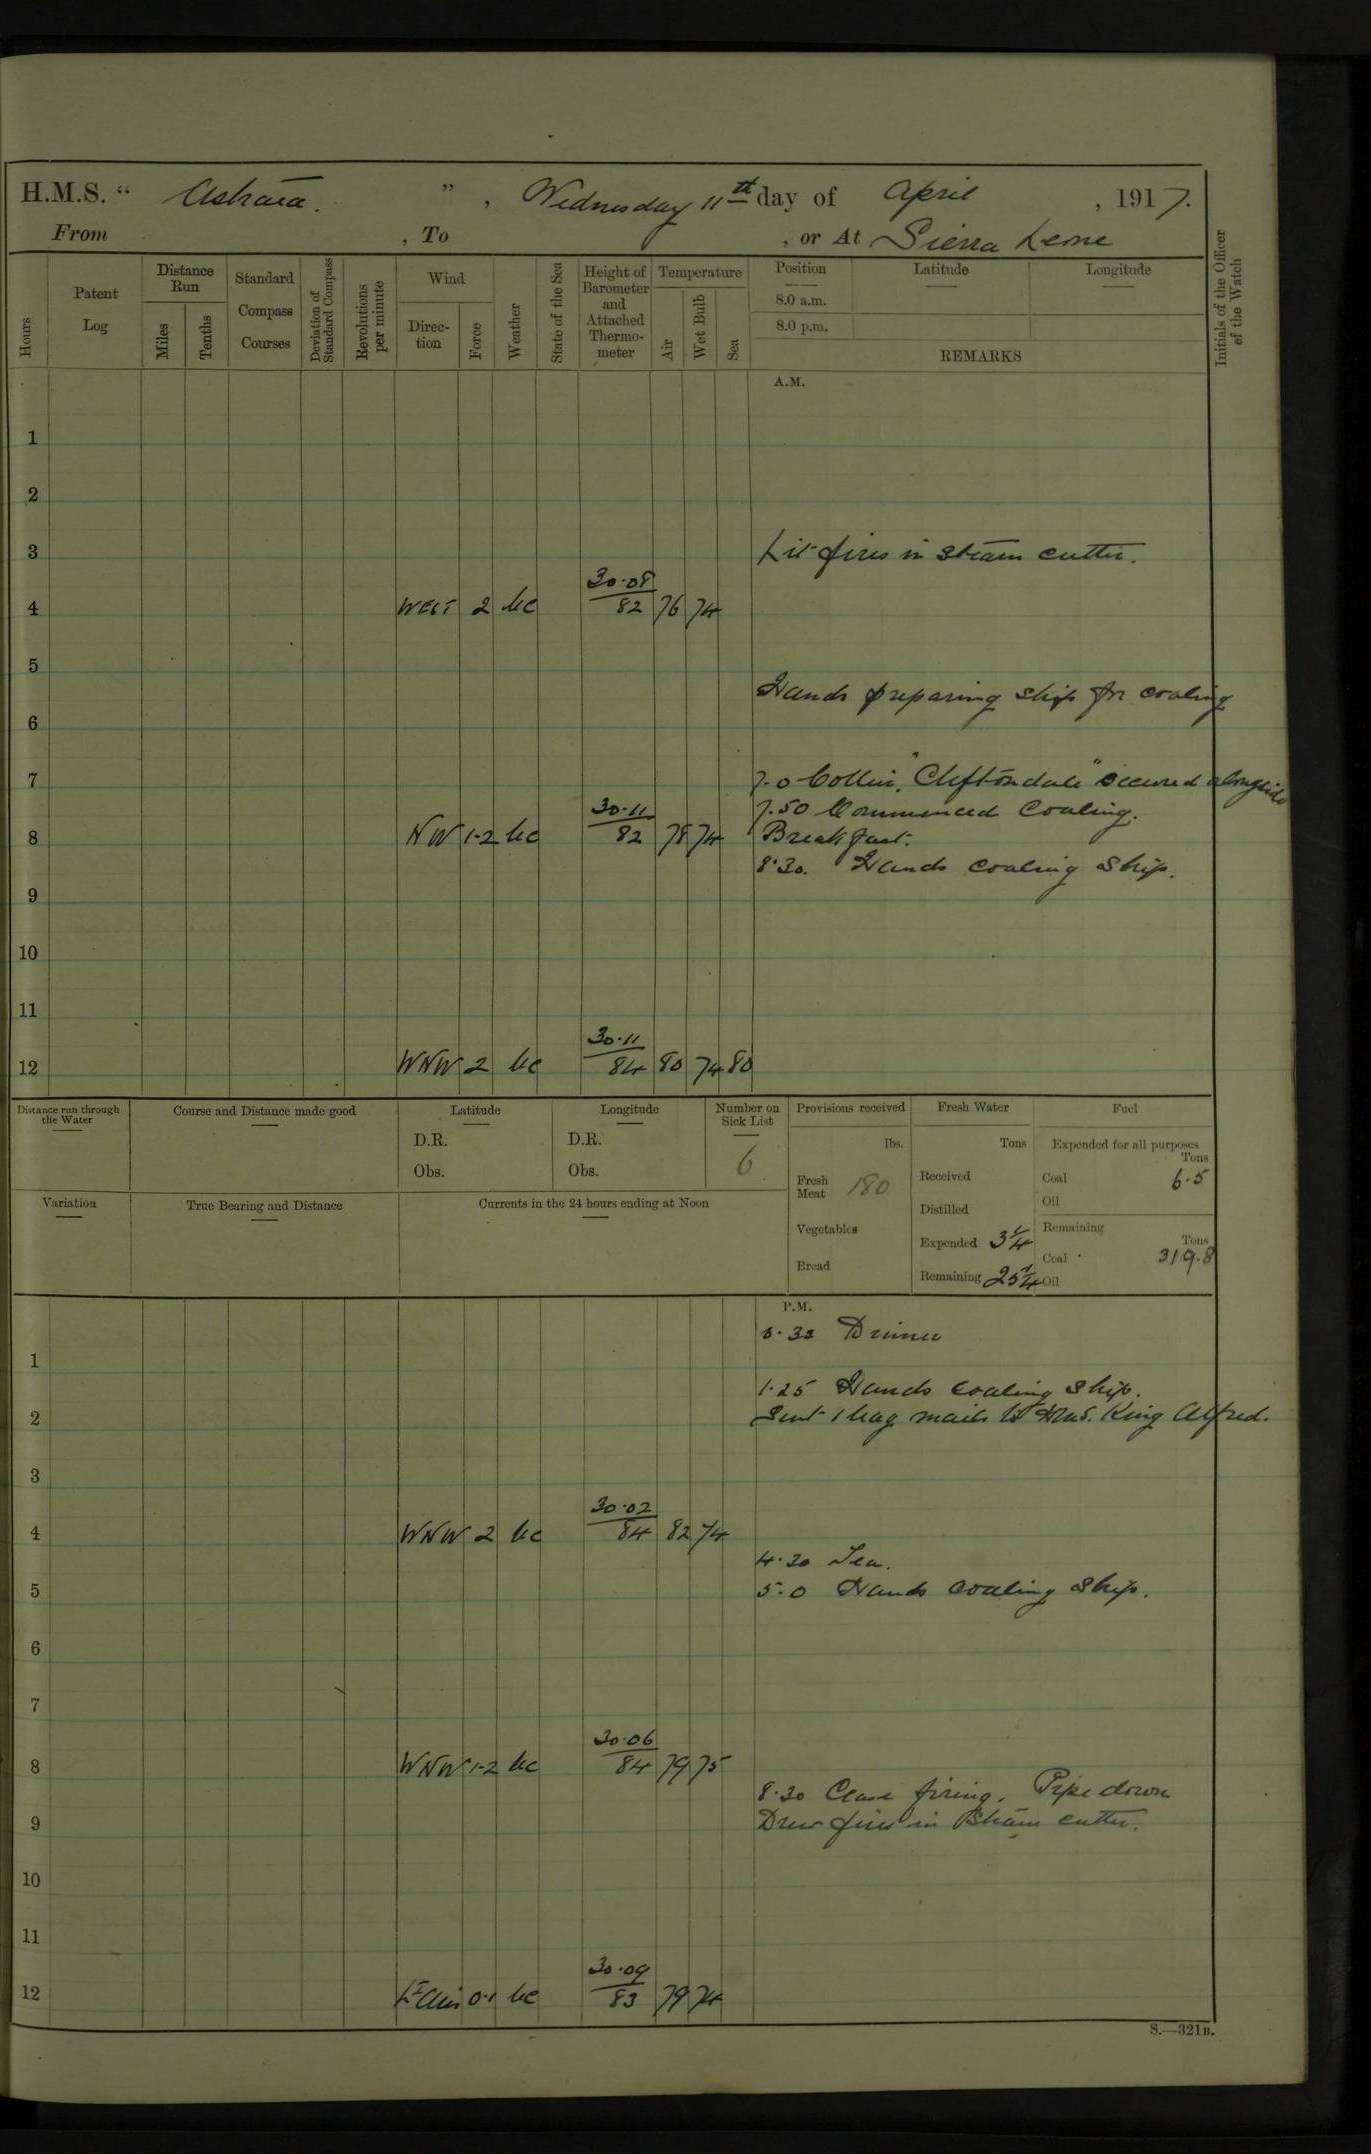 H.M.S. “ Astraea. ”, Wednesday 11th day of April, 1917.
From , To , or At Sierra Leone
Hours
Patent Log
Distance Run
Miles
Tenths
Standard Compass Courses
Deviation of Standard Compass
Revolutions per minute
Wind
Direc-tion
Force
Weather
State of the Sea
Height of Barometer and Attached Thermo-meter
Temperature
Air
Wet Bulb
Sea
Position
Latitude
Longitude
8.0 a.m.
8.0 p.m.
REMARKS
Initials of the Officer of the Watch
A.M.
1
2
3 Lit fires in steam cutter.
30.08
4 WEST 2 bc 82 76 74
5
Hands preparing ship for coaling
6
7 7.0 Collier "Cleftondale" secured alongside
30.11 7.50 Commenced Coaling.
8 NW 1-2 bc 82 78 74 Breakfast.
8.30. Hands coaling ship.
9
10
11
30.11
12 WNW 2 bc 84 80 74 80
Distance run through the Water
Course and Distance made good
Latitude
D.R.
Obs.
Longitude
D.R.
Obs.
Number on Sick List
6
Provisions received
lbs.
Fresh Meat 180
Vegetables
Bread
Fresh Water
Tons
Received
Distilled
Expended 3 1/4
Remaining 25 1/4
Fuel
Expended for all purposes
Tons
Coal 6.5
Oil
Remaining
Tons
Coal 319.8
Oil
Variation
True Bearing and Distance
Currents in the 24 hours ending at Noon
P.M.
0.30 Dinner
1
1.25 Hands coaling ship.
2 Sent 1 bag mails to HMS. King Alfred.
3
30.02
4 WNW 2 bc 84 82 74
4.30 Tea.
5 5.0 Hands coaling ship.
6
7
30.06
8 WNW 1-2 bc 84 79 75
8.30 Cease firing. Pipe down
9 Drew fires in Steam cutter.
10
11
30.09
12 Lt Airs 0.1 bc 83 79 74
S.—321B.